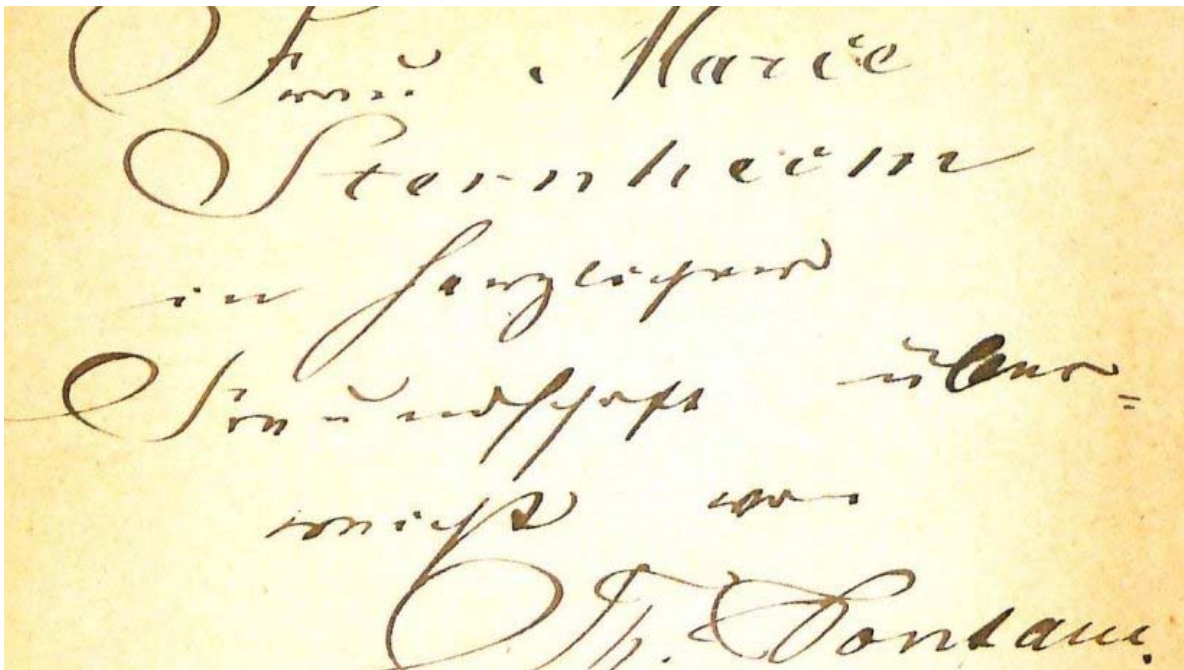 Frau Marie
Sternheim
in herzlicher
Freundschaft über-
reicht von
Th. Fontane.